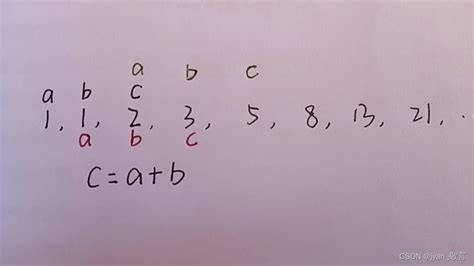 a b c
a b c
1, 1, 2, 3, 5, 8, 13, 21, ..
a b c
c=a+b
CSDN @jyan_敬言